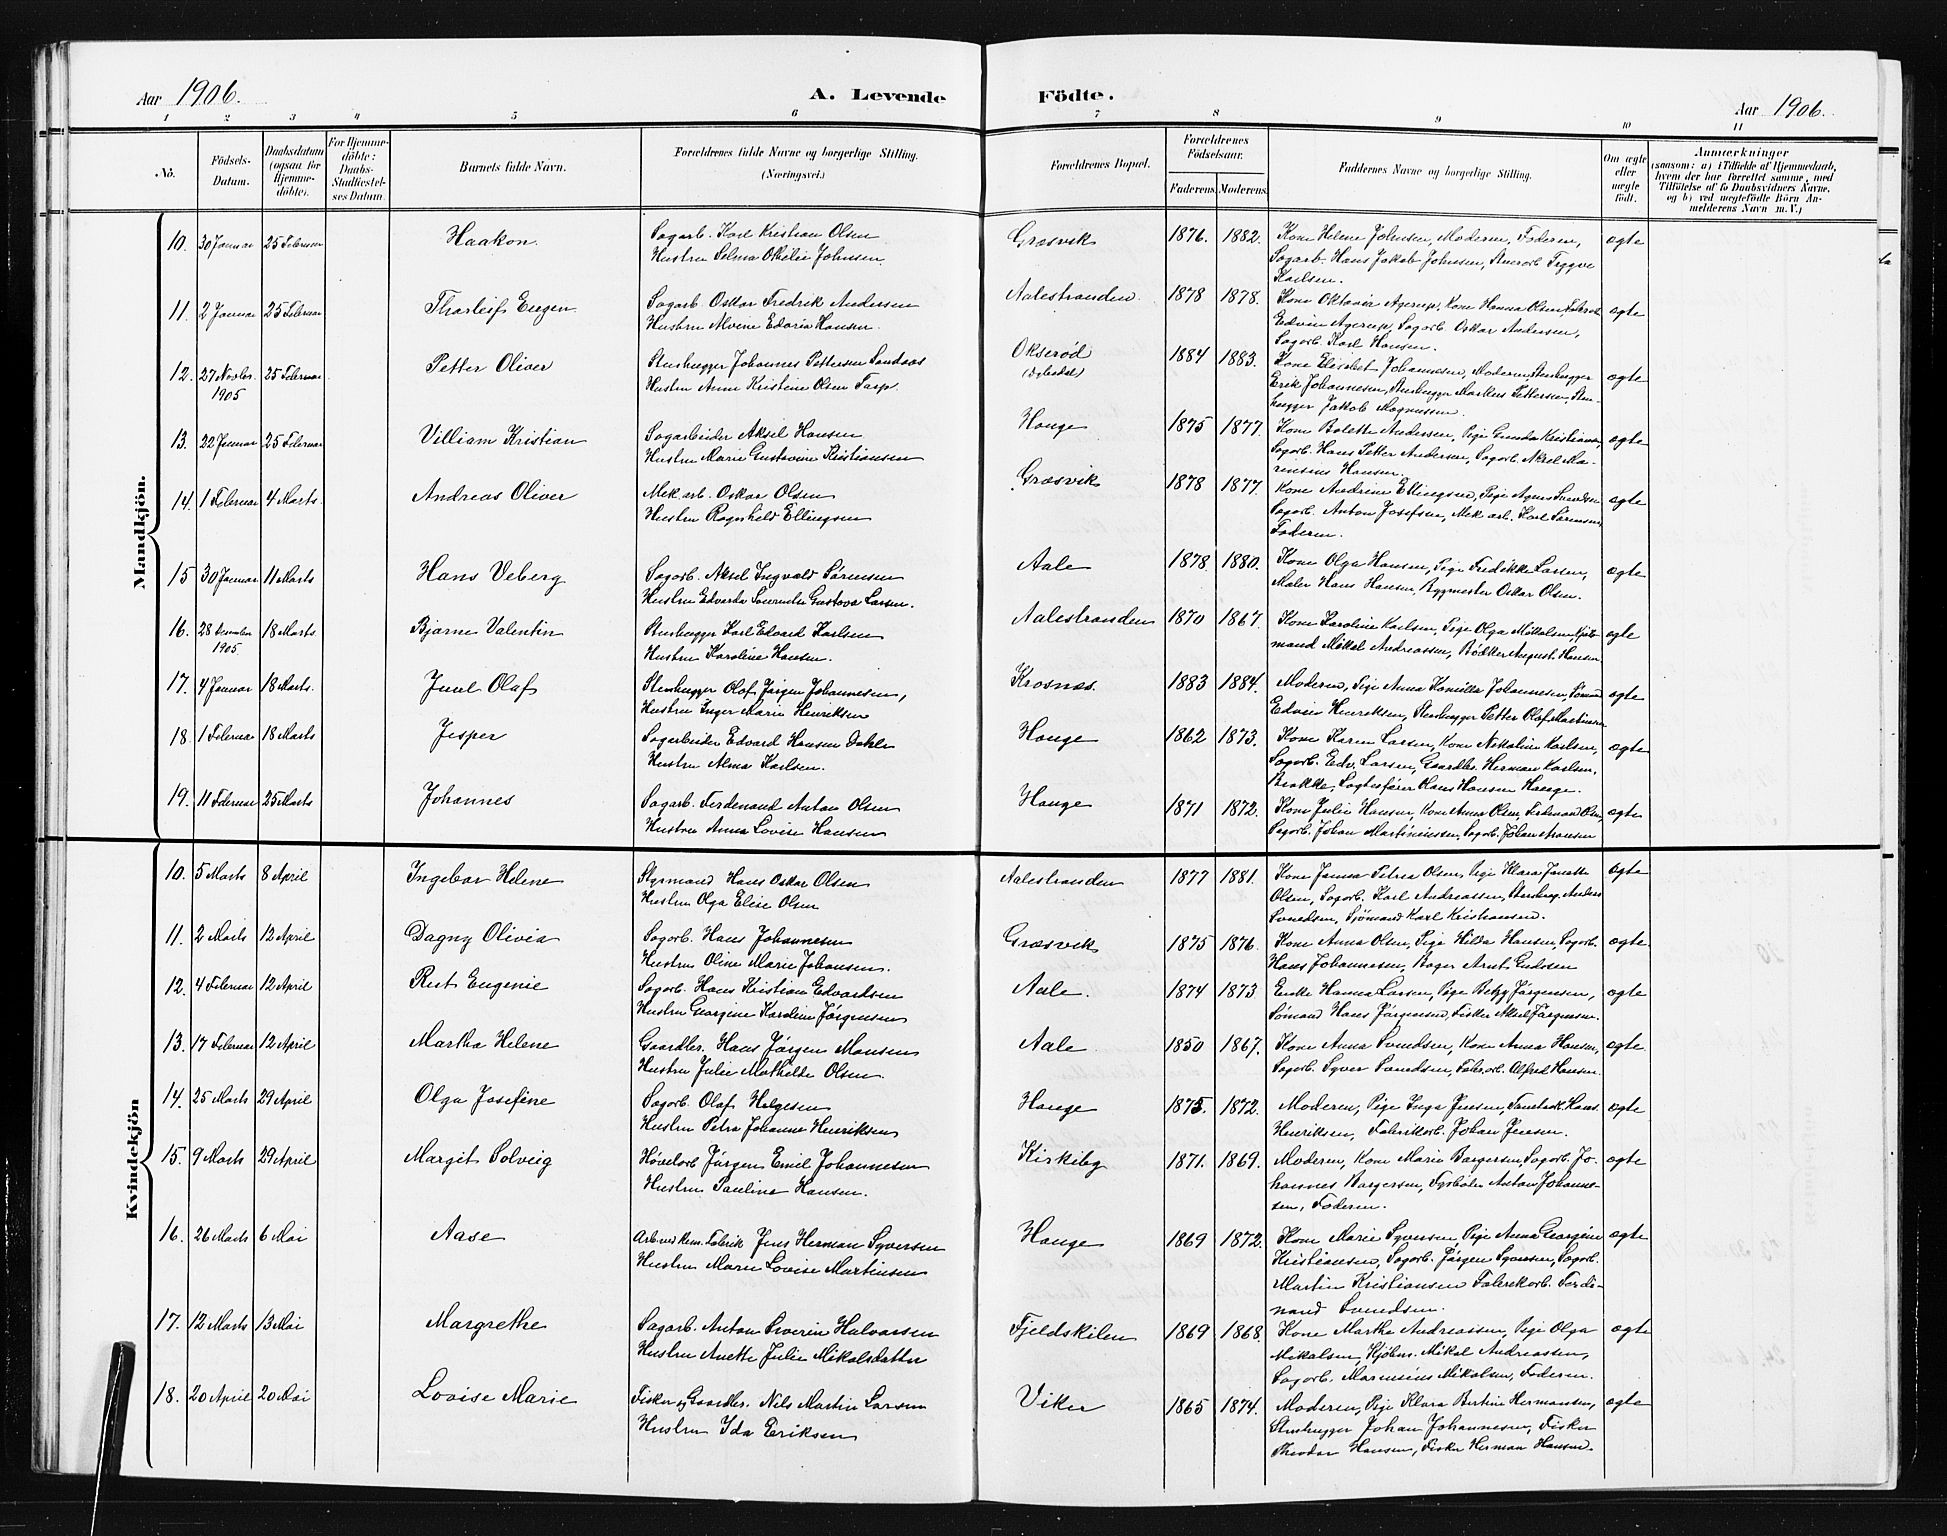 Aar 1906. A. Levende Födte. Aar 1906.
1 2 3 4 5 6 7 8 9 10 11
No. Födsels-Datum. Daabsdatum (ogsaa for Hjemmedöbte). For Hjemmedöbte: Daabs-Stadfæstelses Datum. Barnets fulde Navn. Forældrenes fulde Navne og borgerlige Stilling. (Næringsvei.) Forældrenes Bopæl. Forældrenes Födselsaar. Faderens. Moderens. Faddernes Navne og borgerlige Stilling. Om ægte eller uægte födt. Anmærkninger (saasom: a) i Tilfælde af Hjemmedaab, hvem der har forrettet samme, med Tilföielse af to Daabsvidners Navne, og b) ved uegtefödte Börn Anmelderens Navn m. V.)
Mandkjön.
10. 30 Januar 25 Februar Haakon Sagarb. Karl Kristian Olsen Græsvik 1876. 1882. Kone Helene Johnsen, Moderen, Faderen, ægte
Hustru Selma Otilie Johnsen. Sagarb. Hans Jakob Johnsen, Tryggve
Karlsen.
11. 2 Januar 25 Februar Thorleif Eugen Sagarb. Oskar Fredrik Andersen Aalestranden. 1878 1878. Kone Oktavie Agerup, Kone Hanna Olsen, ægte
Hustru Alvine Edoria Hansen. Edvin Agerup, Sagarb. Oskar Andersen,
Sagarb. Karl Hansen.
12. 27 Novbr. 1905 25 Februar Petter Oliver Stenhugger Johannes Pettersen Sandaas Okserød 1884 1883. Kone Elisabet Johannesen, Moderen, Stenhugger ægte
Hustru Anne Kristine Olsen Tasp. Erik Johannesen, Stenhugger Markus Pettersen, Sten-
hugger Jakob Magnussen.
13. 22 Januar 25 Februar Villiam Kristian Sagarbeider Aksel Hansen Hauge 1875 1877. Kone Bolette Andersen, Pige Gunda Kristiansen, ægte
Hustru Marie Gustavine Kristiansen Sagarb. Hans Petter Andersen, Sagarb. Aksel Ma-
rensius Hansen.
14. 1 Februar 4 Marts. Andreas Oliver Mek. arb. Oskar Olsen Græsvik 1878 1877. Kone Andrine Ellingsen, Pige Agnes Svendsen ægte
Hustru Ragnhild Ellingsen Sagarb. Anton Josefsen, Mek arb. Karl Sørensen,
Faderen.
15 30 Januar 11 Marts Hans Veberg Sagarb. Aksel Ingvald Sørensen Aale 1878 1880. Kone Olga Hansen, Pige Fredikke Larsen, ægte
Hustru Edvarda Gustava Larsen. Maler Hans Hansen, Bygmester Oskar Olsen.
16. 28 Desember 1905 18 Marts Bjarne Valentin Stenhugger Karl Edvard Karlsen Aalestranden 1870 1867. Kone Karoline Karlsen, Pige Olga Mikalsen, Kjøb- ægte
Hustru Karoline Hansen. mand Mikal Andreassen, Bødker August Hansen
17. 4 Januar 18 Marts. Juul Olaf Stenhugger Olaf Jørgen Johannesen, Krosnæs. 1883 1884. Moderen, Pige Anna Kamilla Johannesen, Sømand ægte
Hustru Inger Marie Henriksen Edvin Henriksen, Stenhugger Petter Olaf Martinsen
18. 1 Februar 18 Marts Jesper Sagarbeider Edvard Hansen Dahle Hauge 1862 1873. Kone Karen Larsen, Kone Nikoline Karlsen, ægte
Hustru Alma Karlsen. Sagarb. Edv. Larsen, Gaardbr. Herman Karlsen,
Brække, Hans Hansen Hauge.
19. 11 Februar 25 Marts Johannes Sagarb. Ferdenand Anton Olsen Hauge 1871 1872. Kone Julie Hansen, Kone Anna Olsen, Ferdenand Olsen, ægte
Hustru Anna Lovise Hansen Sagarb. Johan Martiniussen, Sagarb. Johan Hansen
Kvindekjön
10. 5 Marts 8 April Ingebor Helene Styrmand Hans Oskar Olsen Aalestranden 1877 1881. Kone Janna Petrea Olsen, Pige Klara Janette ægte
Hustru Olga Elise Olsen Olsen, Sagarb. Karl Andreassen, Stenhug. Anders
Svendsen, Sjömand Karl Kristiansen.
11. 2 Marts 12 April Dagny Olivia Sagarb. Hans Johannesen Græsvik 1875 1876. Kone Anna Olsen, Pige Hilda Hansen, Sagarb. ægte
Hustru Oline Marie Johansen. Hans Johannesen, Bager Arnt Gulosen
12. 4 Februar 12 April Rut Eugenie Sagarb. Hans Kristian Edvardsen Aale. 1874 1873 Enke Hanna Larsen, Pige Betzy Jørgensen, ægte
Hustru Georgine Karoline Jørgensen Sømand Hans Jørgensen, Fisker Aksel Jørgensen.
13. 17 Februar 12 April Martha Helene Gaardbr. Hans Jørgen Monsen Aale 1850 1867. Kone Anna Svendsen, Kone Anna Hansen, ægte
Hustru Julie Mathilde Olsen. Sagarb. Syver Svendsen, Fabr. arb. Alfred Hansen.
14. 25 Marts 29 April Olga Josefine Sagarb. Olaf Helgesen Hauge 1875. 1872. Moderen, Pige Inga Jensen, Hans ægte
Hustru Petra Johanne Henriksen Henriksen, Fabrikarb. Johan Jensen.
15. 9 Marts 29 April Margit Solveig Høvelarb Jørgen Emil Johannesen Kirkeby 1871. 1869. Moderen, Kone Marie Borgersen, Sagarb. Jo- ægte
Hustru Pauline Hansen. hannes Borgersen, Fyrbøter Anton Johanne-
sen, Faderen.
16. 26 Marts 6 Mai Aase Arb ved kem. Fabrik Jens Herman Syversen Hauge 1869 1872. Kone Marie Syversen, Pige Anna Georgine ægte
Hustru Marie Lovise Martinsen Kristiansen, Sagarb. Jørgen Syversen, Sagarb.
Martin Kristiansen Fabrikarb. Ferdi-
nand Svendsen.
17. 12 Marts 13 Mai Margrethe Sagarb. Anton Severin Halvorsen Fjeldskilen 1869 1868 Kone Marthe Andreassen, Pige Olga ægte
Hustru Anette Julie Mikalsdatter Mikalsen, Kjøbm. Mikal Andreassen,
Sagarb. Marensius Mikalsen, Faderen.
18. 20 April 20 Mai Lovise Marie Fisker og Gaardbr. Nils Martin Larsen Viker 1865 1874. Moderen, Pige Klara Bertine Hermansen, ægte
Hustru Ida Eriksen Stenhugger Johan Johannesen, Fisker
Theodor Hansen, Fisker Herman Hansen.